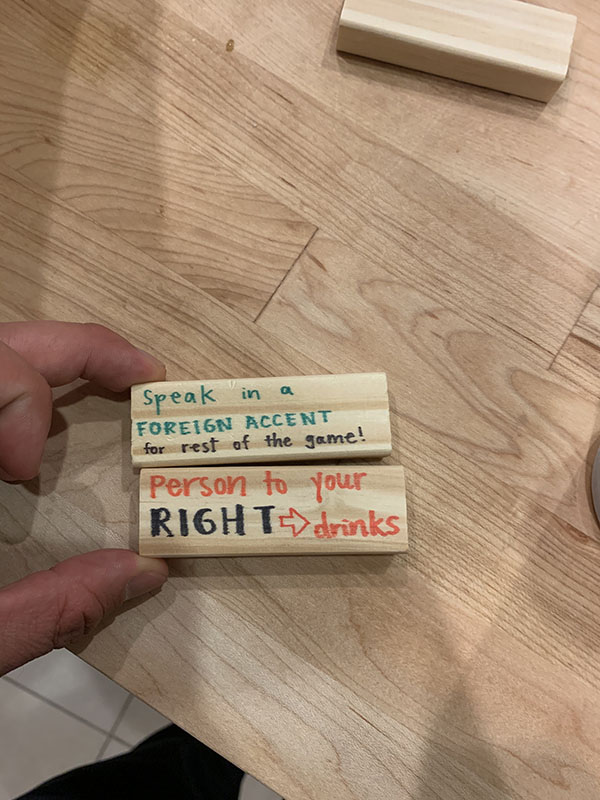 Speak in a
FOREIGN ACCENT
for rest of the game!
Person to your
RIGHT ⇨ drinks